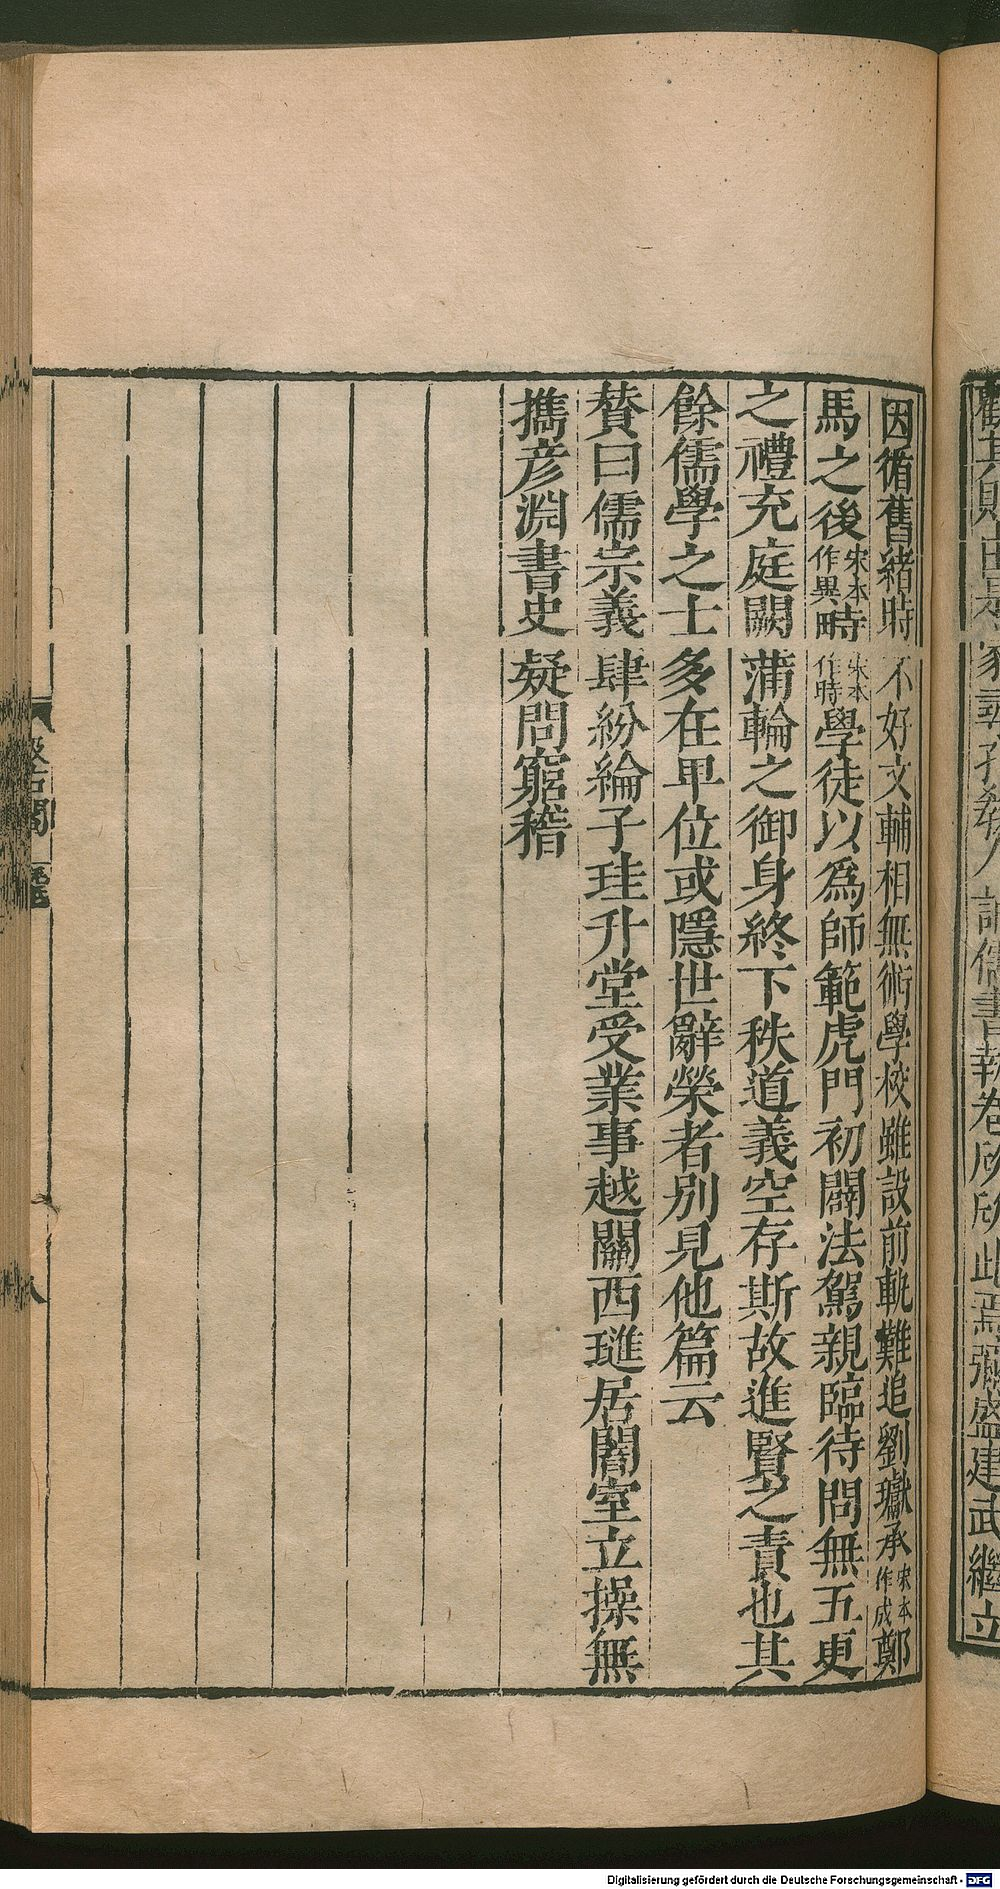 觀其
家尋孔教人誦儒書執卷欣欣此焉彌盛建武繼立
因循舊緒時不好文輔相無術學校雖設前軌難追劉瓛承宋本作成鄭
馬之後宋本作異時宋本作時學徒以爲師範虎門初闢法駕親臨待問無五更
之禮充庭闕蒲輪之御身終下秩道義空存斯故進賢之責也其
餘儒學之士多在卑位或隱世辭榮者別見他篇云
贊曰儒宗義肆紛綸子珪升堂受業事越關西璡居闇室立操無
攜彦淵書史疑問窮稽
汲古閣
八
Digitalisierung gefördert durch die Deutsche Forschungsgemeinschaft - DFG